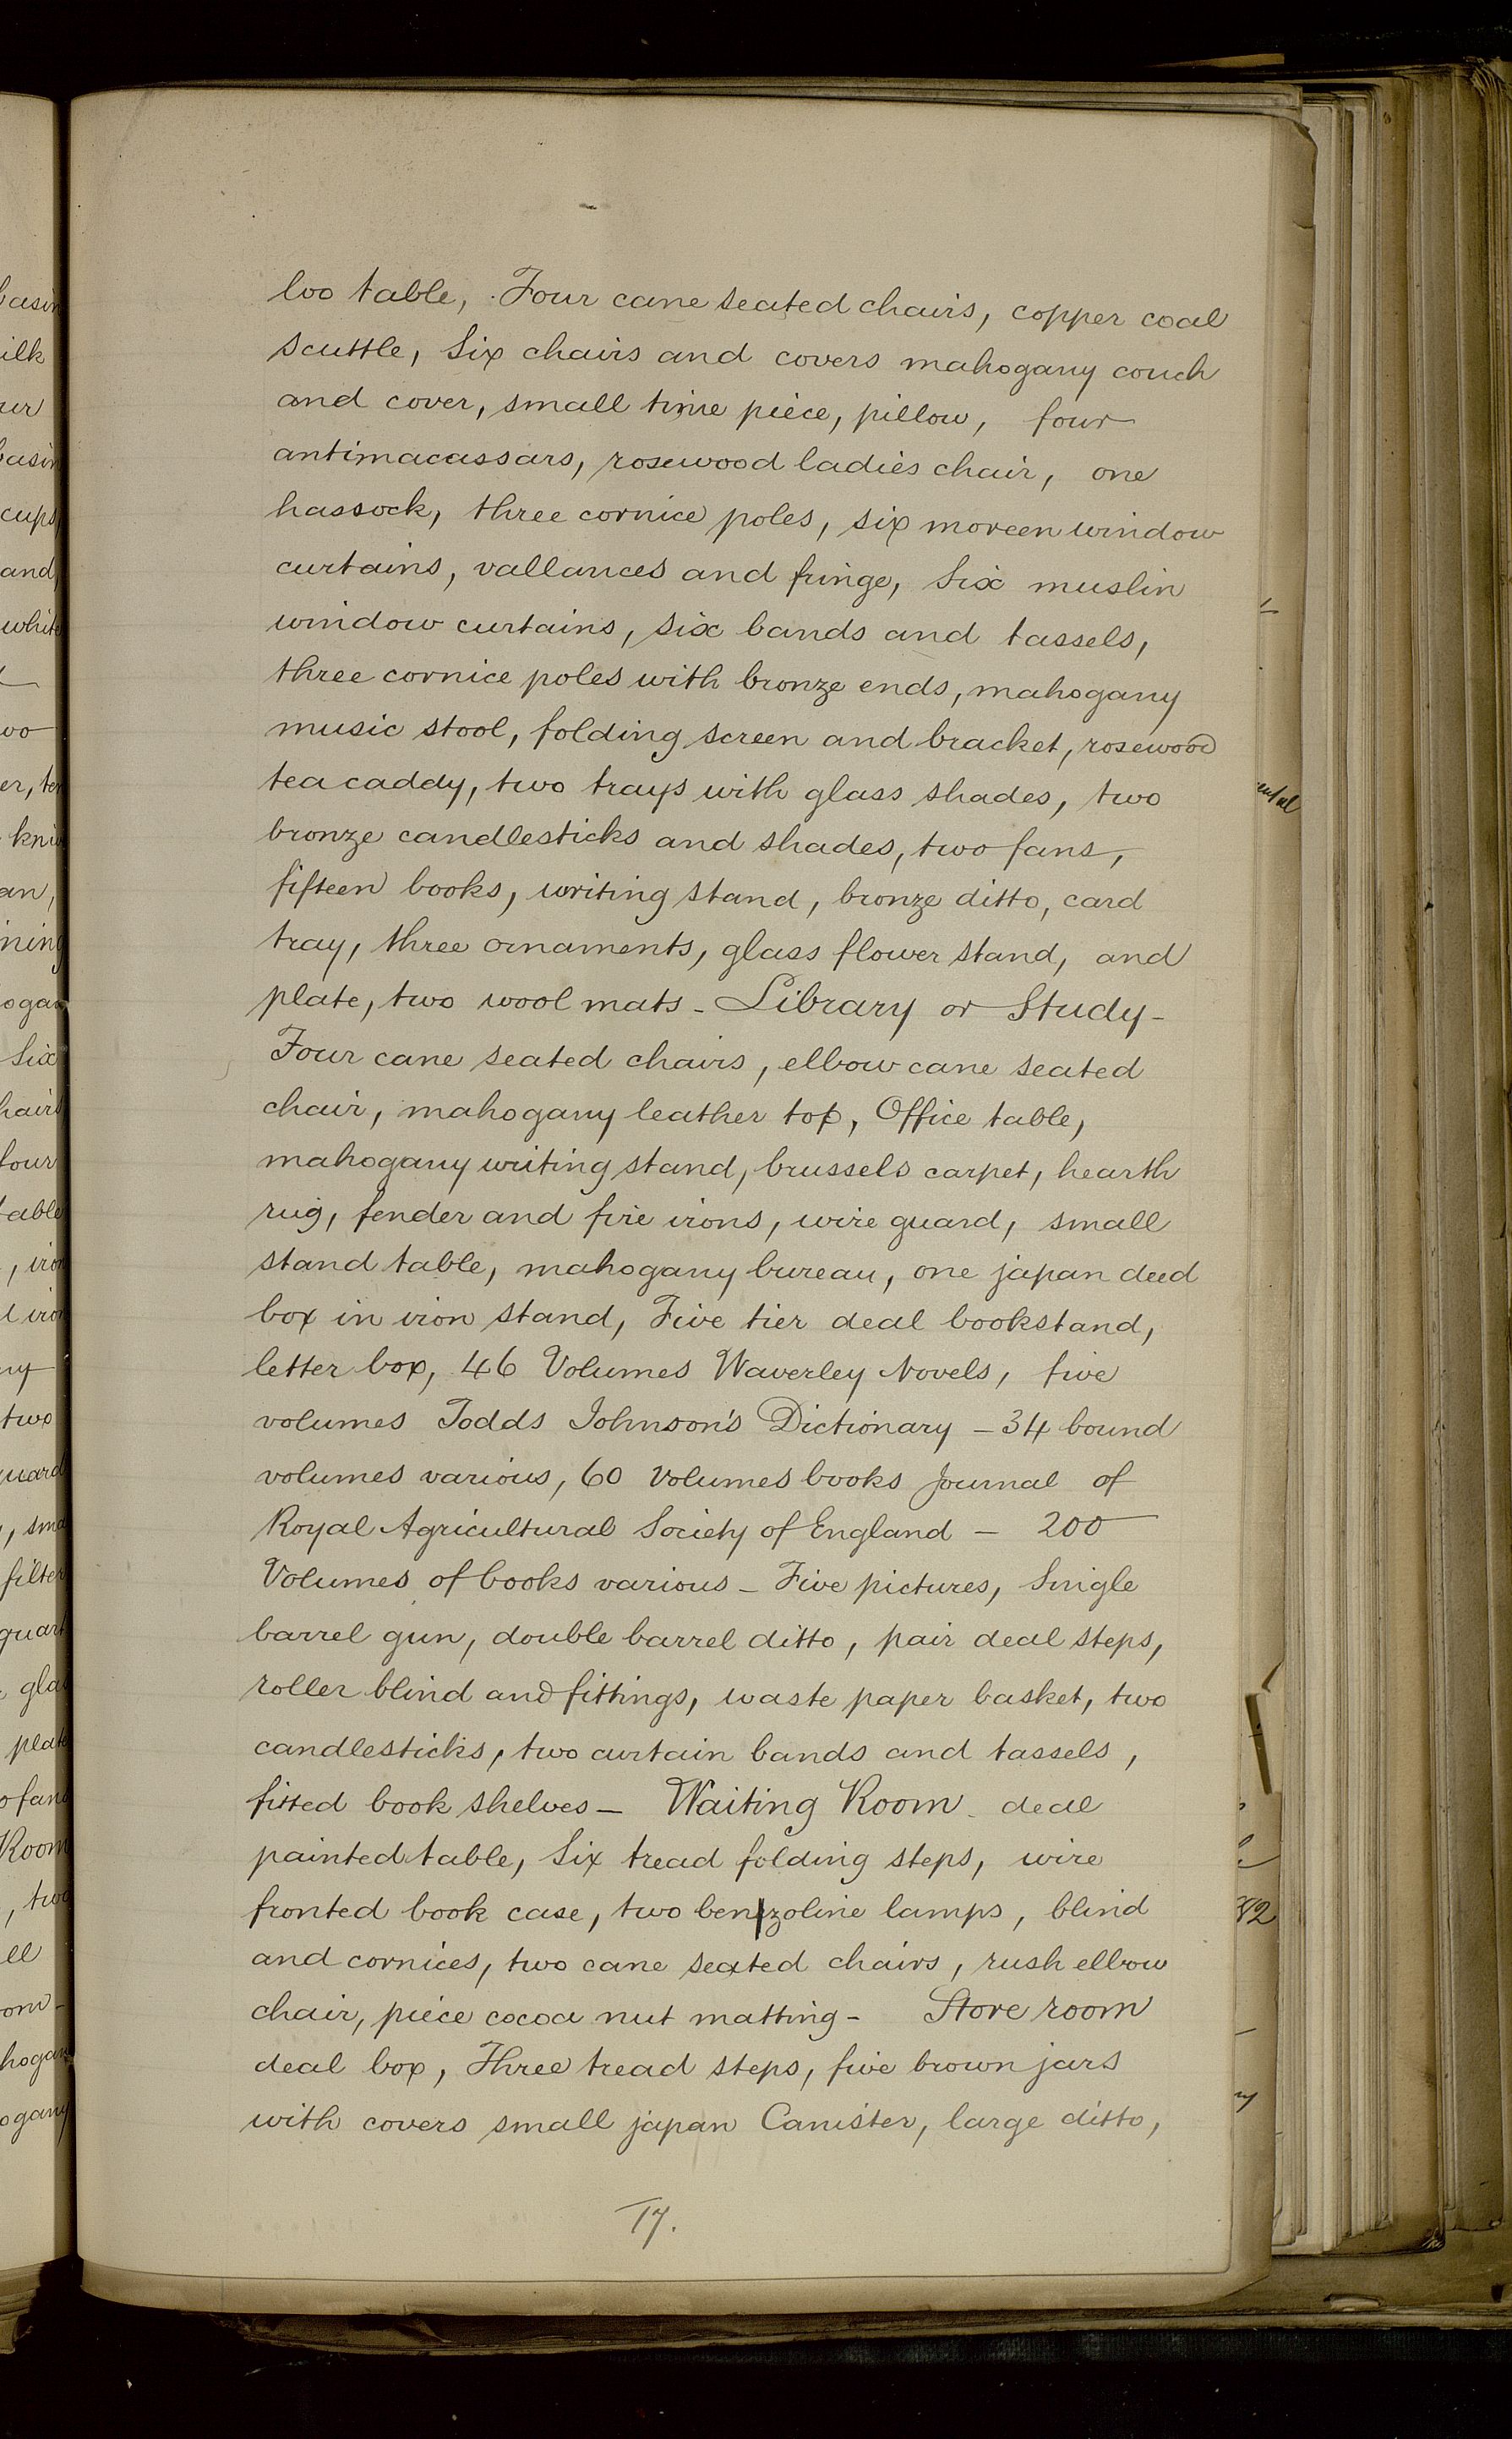 loo table, Four cane seated chairs, copper coal
scuttle, Six chairs and covers mahogany couch
and cover, small time piece, pillow, four
antimacassars, rosewood ladies chair, one
hassock, three cornice poles, six moreen window
curtains, vallances and fringe, Six muslin
window curtains, six bands and tassels,
three cornice poles with bronze ends, mahogany
music stool, folding screen and bracket, rosewood
tea caddy, two trays with glass shades, two
bronze candlesticks and shades, two fans,
fifteen books, writing stand, bronze ditto, card
tray, three ornaments, glass flower stand, and
plate, two wool mats - Library or Study -
Four cane seated chairs, elbow cane seated
chair, mahogany leather top, Office table,
mahogany writing stand, brussels carpet, hearth
rug, fender and fire irons, wire guard, small
stand table, mahogany bureau, one japan deed
box in iron stand, Five tier deal bookstand,
letter box, 46 Volumes Waverley Novels, five
volumes Todds Johnson's Dictionary - 34 bound
volumes various, 60 Volumes books Journal of
Royal Agricultural Society of England - 200
Volumes of books various - Five pictures, Single
barrel gun, double barrel ditto, pair deal steps,
roller blind and fittings, waste paper basket, two
candlesticks, two curtain bands and tassels,
fitted book shelves - Waiting Room - deal
painted table, Six tread folding steps, wire
fronted book case, two benzoline lamps, blind
and cornices, two cane seated chairs, rush elbow
chair, piece cocoa nut matting - Store room
deal box, Three tread steps, five brown jars
with covers small japan Canister, large ditto,
17.